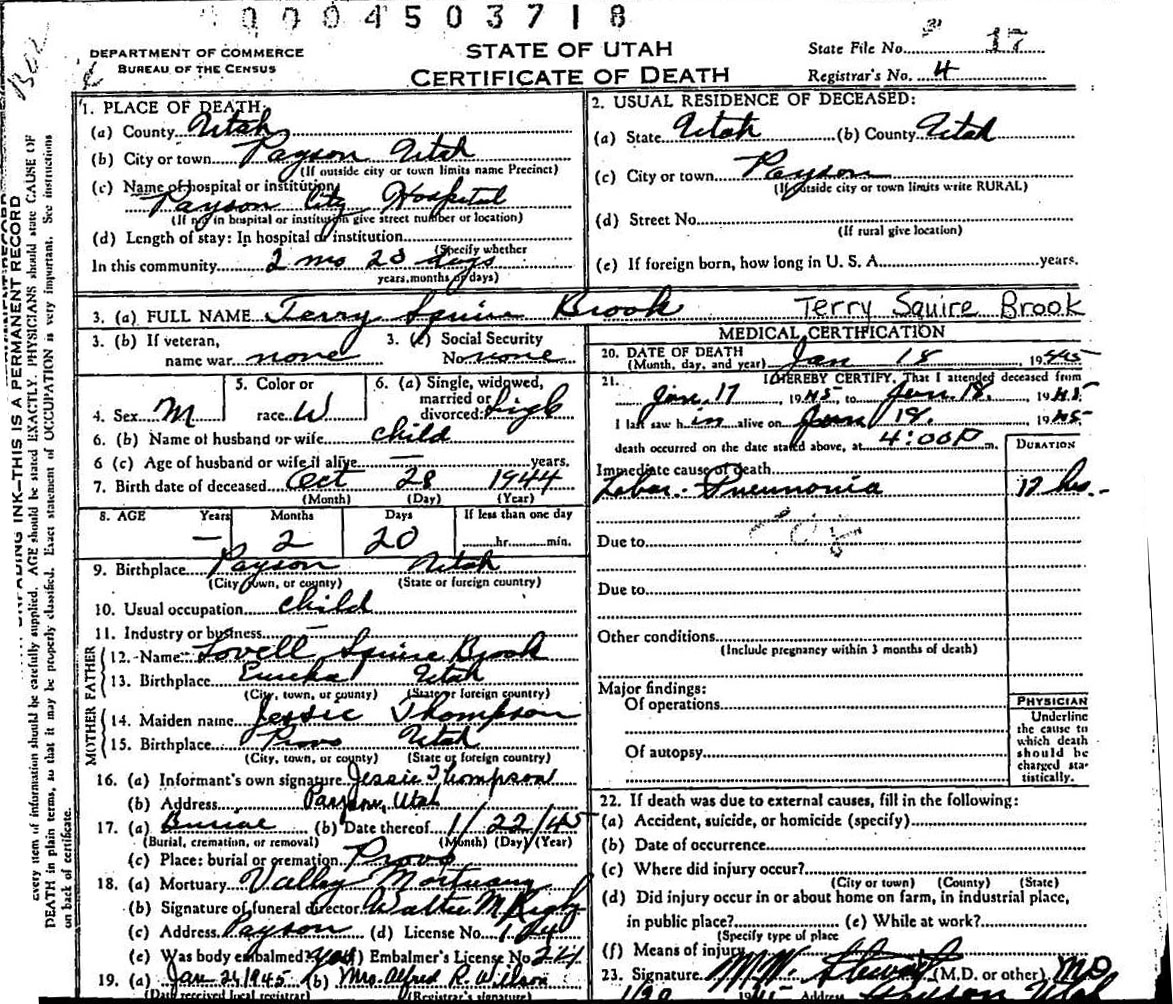 0004503718
DEPARTMENT OF COMMERCE
BUREAU OF THE CENSUS
STATE OF UTAH
CERTIFICATE OF DEATH
State File No. 17
Registrar's No. 4
every item of information should be carefully supplied. AGE should be stated EXACTLY. PHYSICIANS should state CAUSE OF
DEATH in plain terms, so that it may be properly classified. Exact statement of OCCUPATION is very important. See instructions
on back of certificate.
INK—THIS IS A PERMANENT RECORD
1. PLACE OF DEATH
(a) County Utah
(b) City or town Payson Utah
(If outside city or town limits name Precinct)
(c) Name of hospital or institution
Payson City Hospital
(If not in hospital or institution give street number or location)
(d) Length of stay: In hospital or institution
(Specify whether
In this community 2 mo 20 days
years, months or days)
2. USUAL RESIDENCE OF DECEASED:
(a) State Utah (b) County Utah
(c) City or town Payson
(If outside city or town limits write RURAL)
(d) Street No.
(If rural give location)
(e) If foreign born, how long in U. S. A. years.
3. (a) FULL NAME Terry Squire Brook Terry Squire Brook
3. (b) If veteran,
name war none
3. (c) Social Security
No none
4. Sex M
5. Color or
race W
6. (a) Single, widowed,
married or
divorced
6. (b) Name of husband or wife child
6 (c) Age of husband or wife if alive — years.
7. Birth date of deceased Oct 28 1944
(Month) (Day) (Year)
8. AGE Years Months Days If less than one day
— 2 20 hr. min.
9. Birthplace Payson Utah
(City town, or county) (State or foreign country)
10. Usual occupation child
11. Industry or business —
FATHER
12. Name Lovell Squire Brook
13. Birthplace Eureka Utah
(City, town, or county) (State or foreign country)
MOTHER
14. Maiden name Jessie Thompson
15. Birthplace Provo Utah
(City, town, or county) (State or foreign country)
16. (a) Informant's own signature Jessie Thompson
(b) Address Payson, Utah
17. (a) Burial (b) Date thereof 1/22/45
(Burial, cremation, or removal) (Month) (Day) (Year)
(c) Place: burial or cremation Provo
18. (a) Mortuary Valley Mortuary
(b) Signature of funeral director Walter M Rigby
(c) Address Payson (d) License No.
(e) Was body embalmed? Embalmer's License No.
19. (a) Jan 21 1945 (b) Mrs. Alfred R. Wilson
(Date received local registrar) (Registrar's signature)
MEDICAL CERTIFICATION
20. DATE OF DEATH
(Month, day, and year) Jan 18 1945
21. I HEREBY CERTIFY, That I attended deceased from
Jan. 17, 1945, to Jan. 18. 1945
I last saw him alive on Jan 18. 1945
death occurred on the date stated above, at 4:00 P m.
DURATION
Immediate cause of death
Lobar - Pneumonia 12 hrs.
Due to
Due to
Other conditions
(Include pregnancy within 3 months of death)
Major findings:
Of operations
Of autopsy
PHYSICIAN
Underline
the cause to
which death
should be
charged sta-
tistically.
22. If death was due to external causes, fill in the following:
(a) Accident, suicide, or homicide (specify)
(b) Date of occurrence
(c) Where did injury occur?
(City or town) (County) (State)
(d) Did injury occur in or about home on farm, in industrial place,
in public place? (e) While at work?
(Specify type of place
(f) Means of injury
23. Signature M. W. Stewart (M.D. or other) MD
1/20 1945 Address Payson Utah